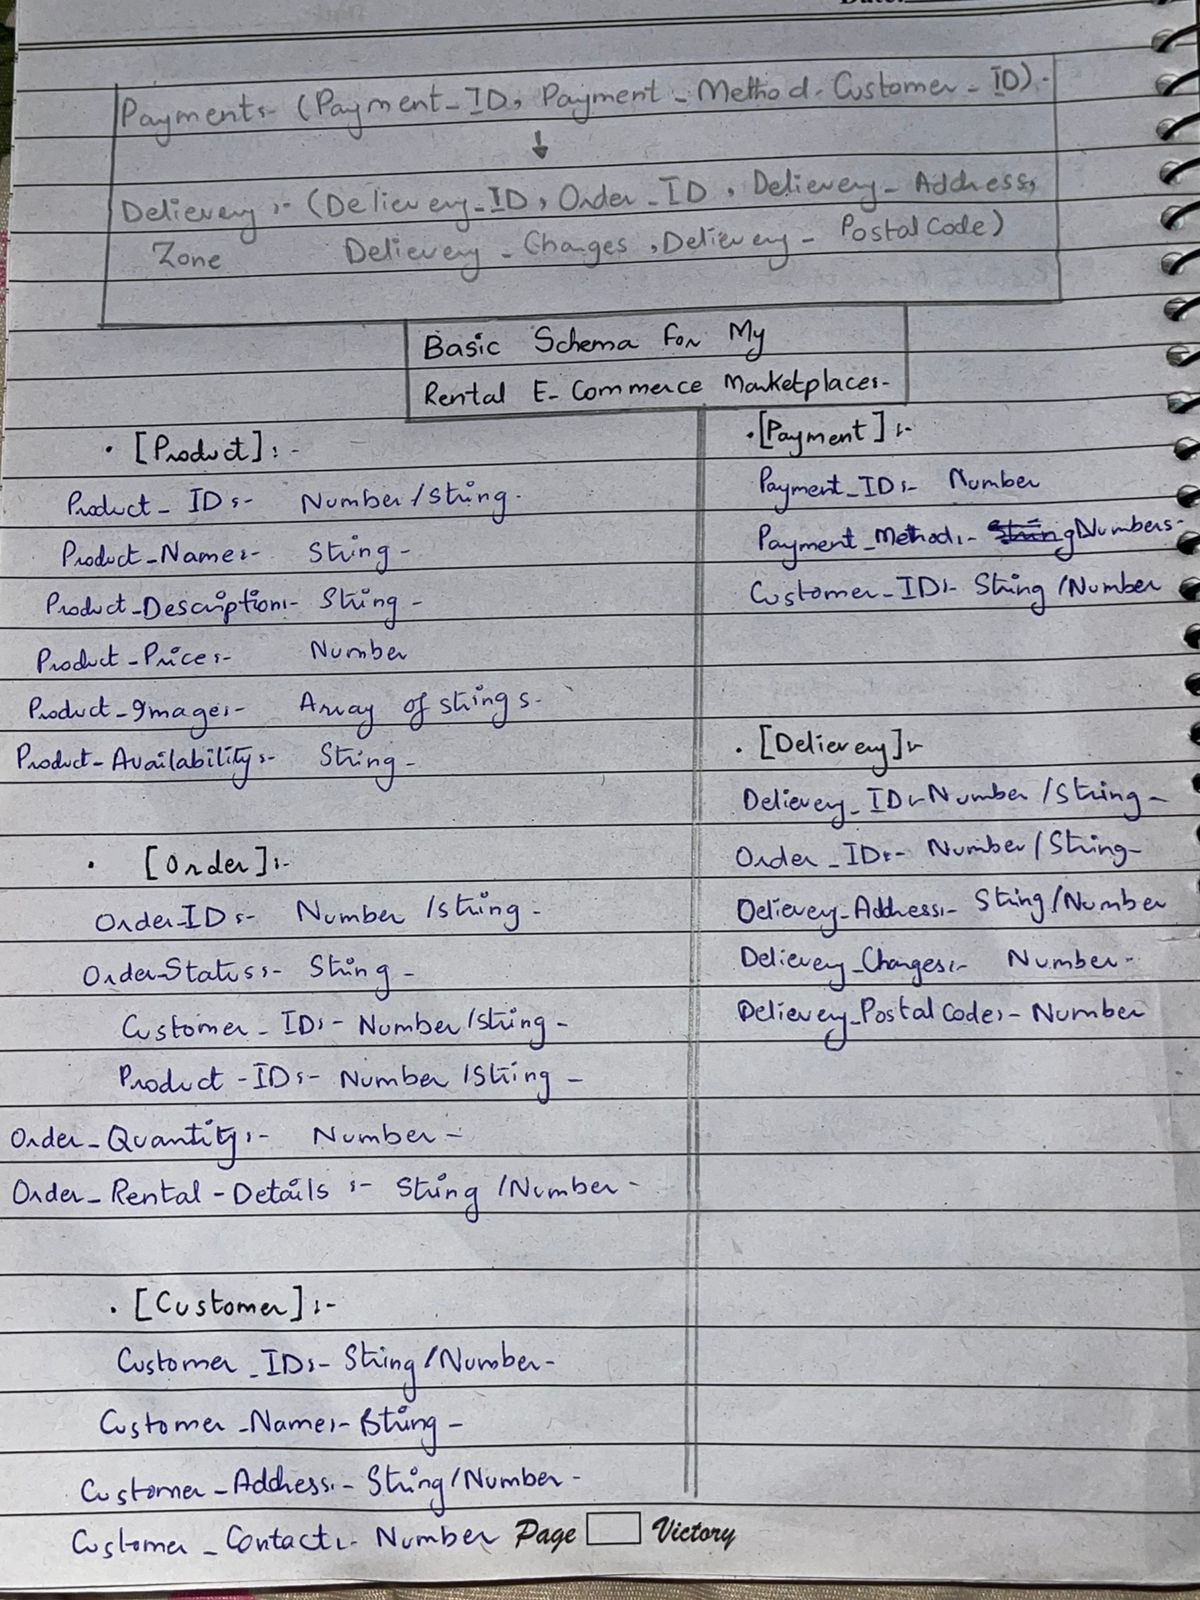 Payment:- (Payment_ID, Payment_Method, Customer_ID).
↓
Delievery :- (Delievery_ID, Order_ID, Delievery_Address,
Zone Delievery_Charges, Delievery_PostalCode)
Basic Schema For My
Rental E-Commerce Marketplace:-
• [Product]:-
Product_ID:- Number/String-
Product_Name:- String-
Product_Description:- String-
Product_Price:- Number
Product_Image:- Array of strings-
Product-Availability:- String-
• [Order]:-
Order_ID:- Number/String-
Order_Status:- String-
Customer_ID:- Number/String-
Product-ID:- Number/String-
Order_Quantity:- Number-
Order_Rental-Details :- String/Number-
• [Customer]:-
Customer_ID:- String/Number-
Customer_Name:- String-
Customer_Address:- String/Number-
Customer_Contact:- Number
•[Payment]:-
Payment_ID:- Number
Payment_Method:- Numbers-
Customer_ID:- String/Number
• [Delievery]:-
Delievery_ID:- Number/String-
Order_ID:- Number/String-
Delievey_Address:- String/Number
Delievey_Charges:- Number-
Delievey_PostalCode:- Number
Page Victory